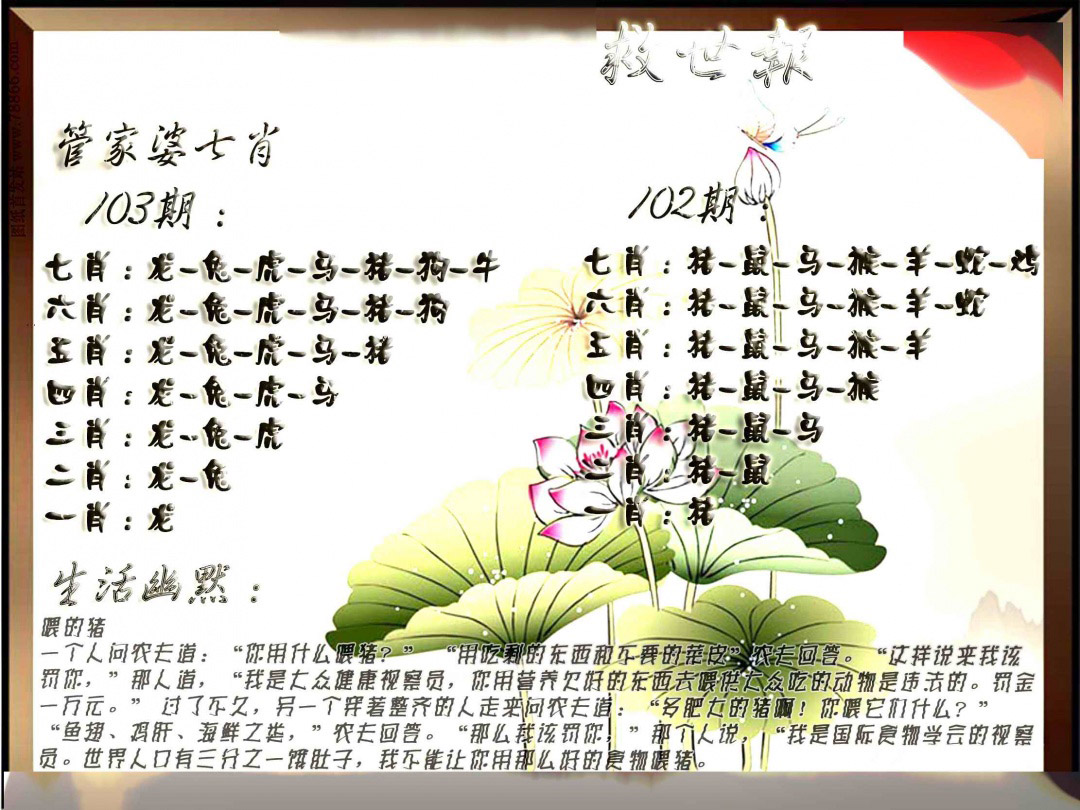 救世報
管家婆七肖
103期：
七肖：龙-兔-虎-马-猪-狗-牛
六肖：龙-兔-虎-马-猪-狗
五肖：龙-兔-虎-马-猪
四肖：龙-兔-虎-马
三肖：龙-兔-虎
二肖：龙-兔
一肖：龙
102期：
七肖：猪-鼠-马-猴-羊-蛇-鸡
六肖：猪-鼠-马-猴-羊-蛇
五肖：猪-鼠-马-猴-羊
四肖：猪-鼠-马-猴
三肖：猪-鼠-马
二肖：猪-鼠
一肖：猪
生活幽默：
喂的猪
一个人问农夫道：“你用什么喂猪？” “用吃剩的东西和不要的菜皮”农夫回答。“这样说来我该
罚你，”那人道，“我是大众健康视察员，你用营养欠好的东西去喂供大众吃的动物是违法的。罚金
一万元。” 过了不久，另一个穿着整齐的人走来问农夫道：“多肥大的猪啊！你喂它们什么？”
“鱼翅、鸡肝、海鲜之类，”农夫回答。“那么我该罚你，”那个人说，“我是国际食物学会的视察
员。世界人口有三分之一饿肚子，我不能让你用那么好的食物喂猪。